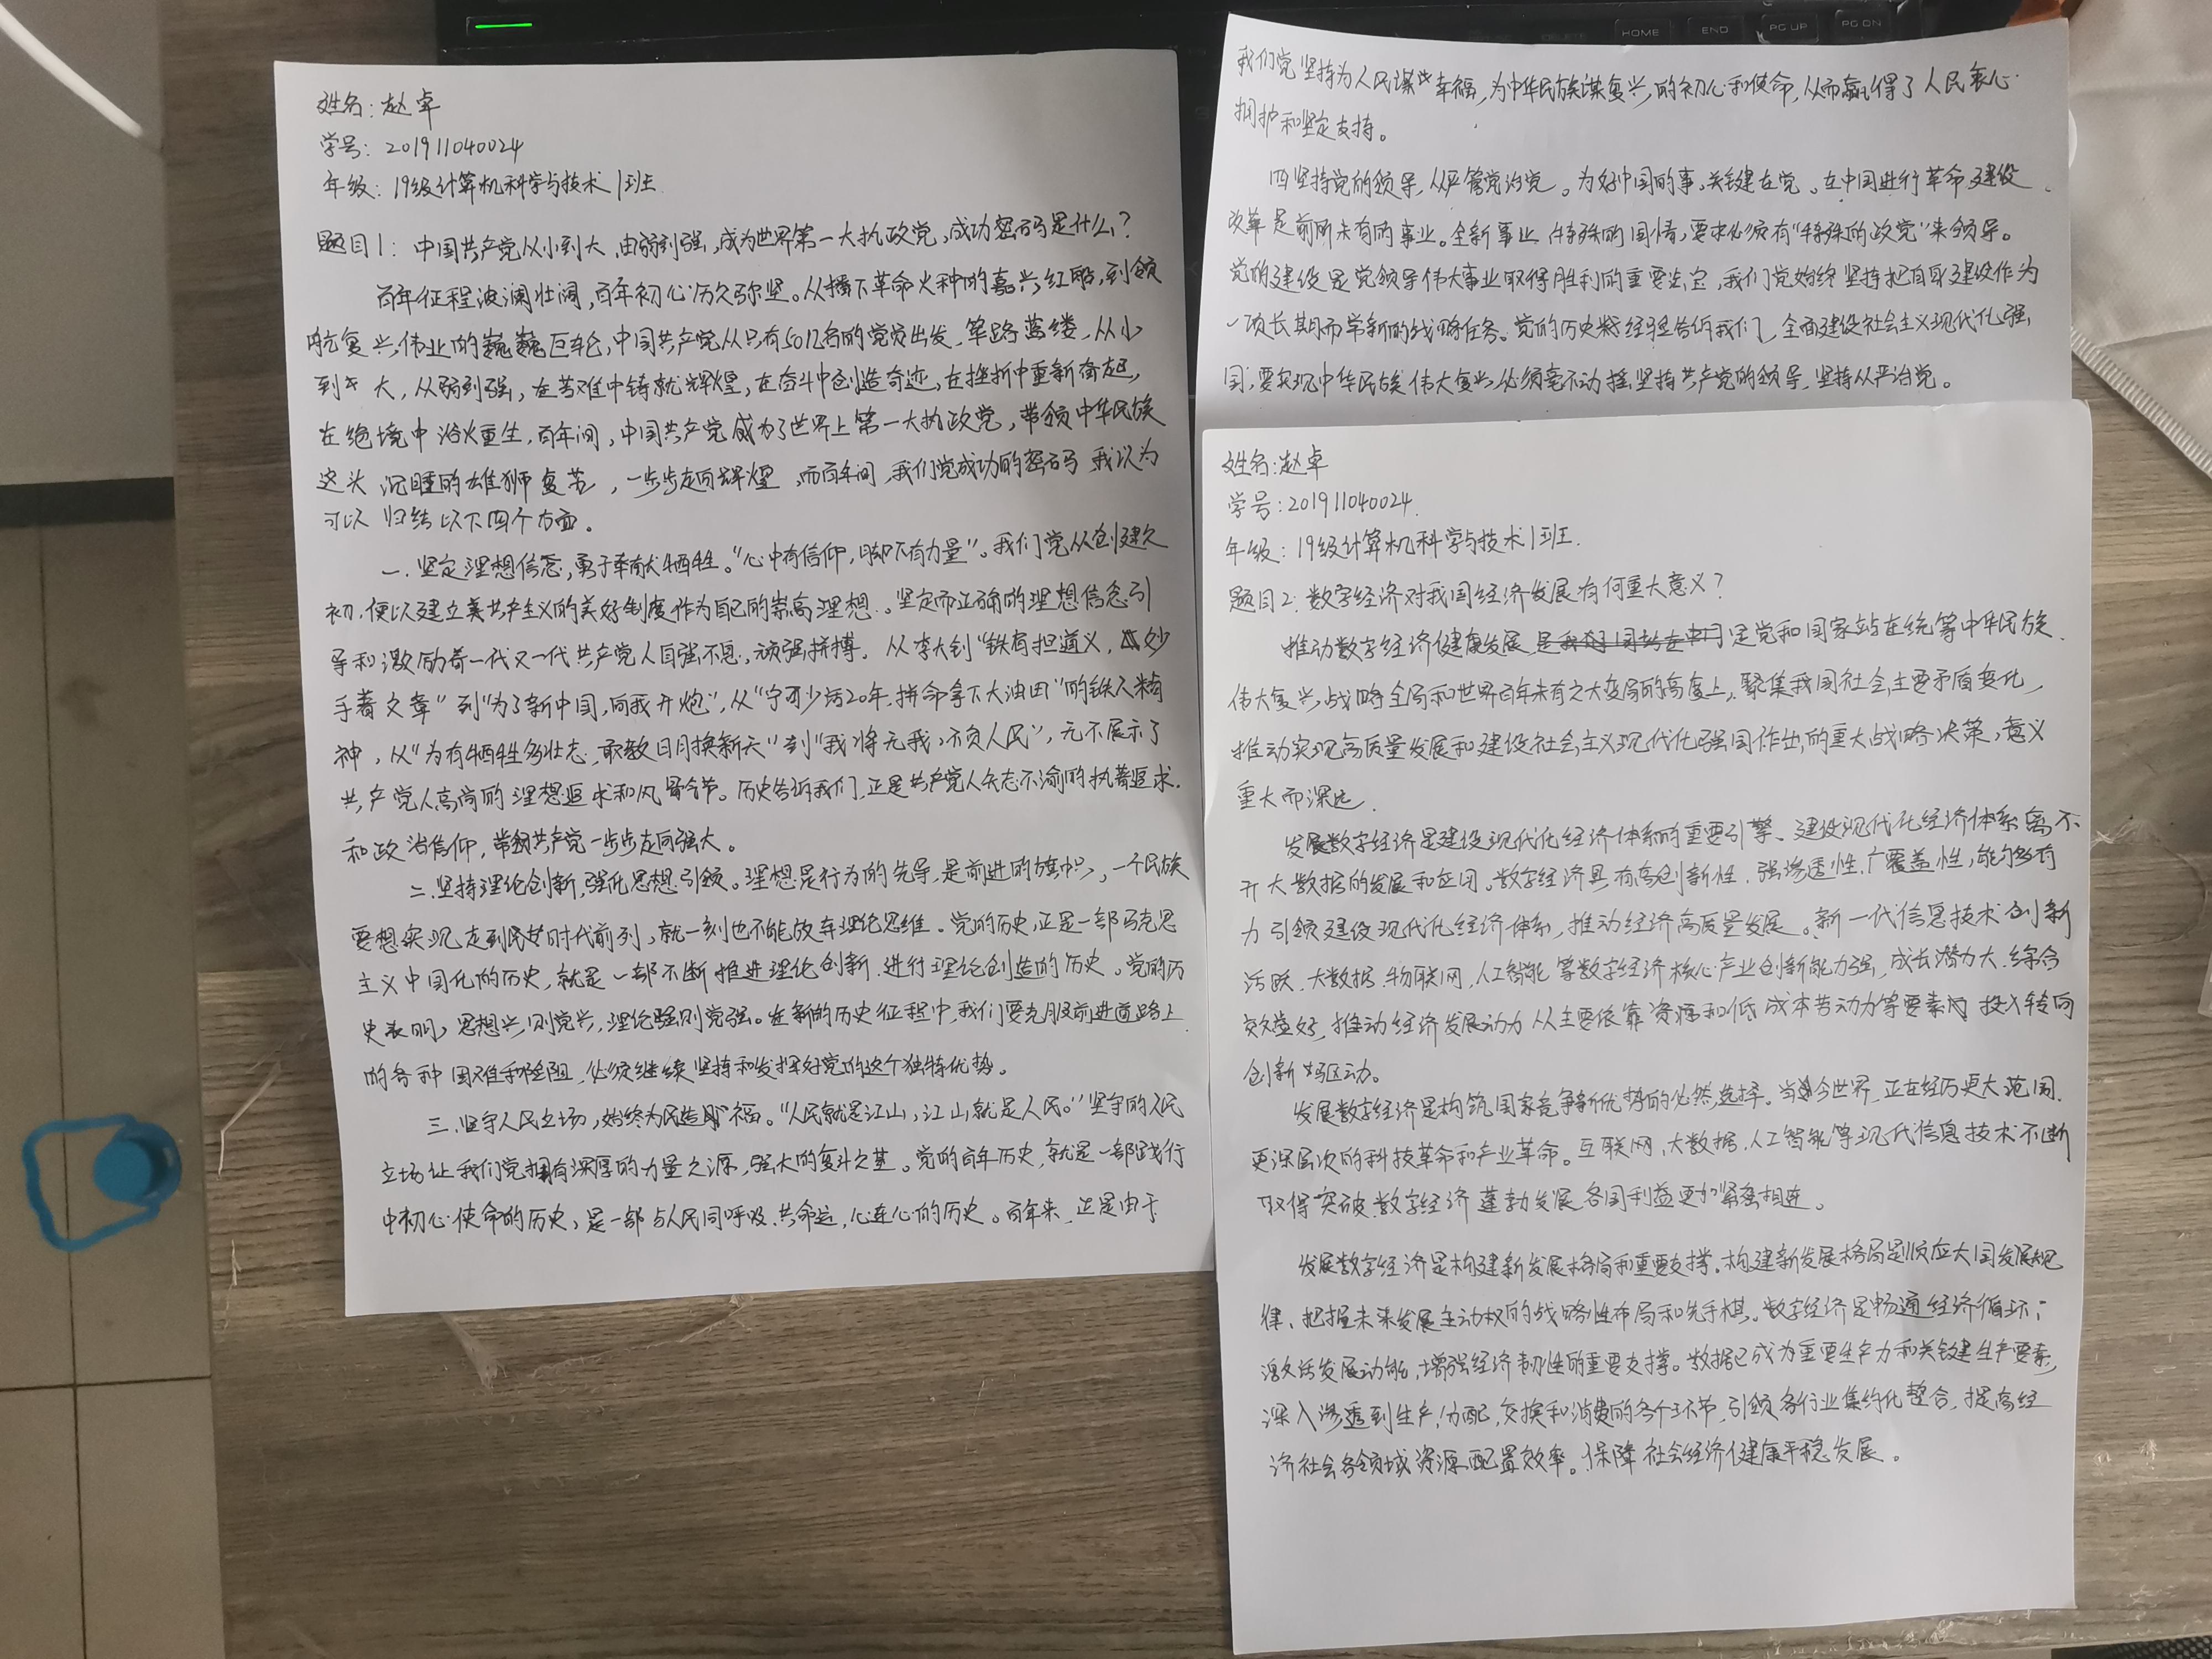 姓名：赵卓
学号：201911040024
年级：19级计算机科学与技术1班
题目1：中国共产党从小到大、由弱到强，成为世界第一大执政党，成功密码是什么？
百年征程波澜壮阔，百年初心历久弥坚。从播下革命火种的嘉兴红船，到领
航复兴伟业的巍巍巨轮，中国共产党从只有50几名的党员出发，筚路蓝缕，从小
到大，从弱到强，在苦难中铸就辉煌，在奋斗中创造奇迹，在挫折中重新奋起，
在绝境中浴火重生，百年间，中国共产党成为了世界上第一大执政党，带领中华民族
这头沉睡的雄狮复苏，一步步走向辉煌，而百年间，我们党成功的密码我以为
可以归结以下四个方面。
一、坚定理想信念，勇于奉献牺牲。“心中有信仰，脚下有力量”。我们党从创建之
初，便以建立共产主义的美好制度作为自己的崇高理想。坚定而正确的理想信念引
导和激励着一代又一代共产党人自强不息，顽强拼搏，从李大钊“铁肩担道义，妙
手著文章”到“为了新中国，向我开炮”，从“宁可少活20年，拼命拿下大油田”的铁人精
神，从“为有牺牲多壮志，敢教日月换新天”到“我将无我，不负人民”，无不展示了
共产党人高尚的理想追求和风骨气节。历史告诉我们，正是共产党人矢志不渝的执着追求
和政治信仰，带领共产党一步步走向强大。
二、坚持理论创新，强化思想引领。理想是行为的先导，是前进的旗帜，一个民族
要想实现走到时代前列，就一刻也不能放弃理论思维。党的历史，正是一部马克思
主义中国化的历史，就是一部不断推进理论创新、进行理论创造的历史。党的历
史表明，思想兴则党兴，理论强则党强。在新的历史征程中，我们要克服前进道路上
的各种困难和险阻，必须继续坚持和发挥好党的这个独特优势。
三、坚守人民立场，始终为民造福。“人民就是江山，江山就是人民。”坚守的人民
立场让我们党拥有深厚的力量之源，强大的奋斗之基。党的百年历史，就是一部践行
中初心使命的历史，是一部与人民同呼吸、共命运，心连心的历史。百年来，正是由于
我们党坚持为人民谋幸福，为中华民族谋复兴的初心和使命，从而赢得了人民衷心
拥护和坚定支持。
四坚持党的领导，从严管党治党。为好中国的事，关键在党。在中国进行革命、建设、
改革是前所未有的事业。全新事业、特殊的国情，要求必须有“特殊的政党”来领导。
党的建设是党领导伟大事业取得胜利的重要法宝，我们党始终坚持把自身建设作为
一项长期而常新的战略任务。党的历史经验告诉我们，全面建设社会主义现代化强
国，要实现中华民族伟大复兴，必须毫不动摇坚持共产党的领导，坚持从严治党。
姓名：赵卓
学号：201911040024
年级：19级计算机科学与技术1班
题目2：数字经济对我国经济发展有何重大意义？
推动数字经济健康发展，是党和国家站在统筹中华民族
伟大复兴战略全局和世界百年未有之大变局的高度上，聚集我国社会主要矛盾变化，
推动实现高质量发展和建设社会主义现代化强国作出的重大战略决策，意义
重大而深远。
发展数字经济是建设现代化经济体系的重要引擎、建设现代化经济体系离不
开大数据的发展和应用。数字经济具有高创新性、强渗透性、广覆盖性，能够有
力引领建设现代化经济体系，推动经济高质量发展。新一代信息技术创新
活跃，大数据、物联网，人工智能等数字经济核心产业创新能力强，成长潜力大，综合
效益好，推动经济发展动力从主要依靠资源和低成本劳动力等要素投入转向
创新驱动。
发展数字经济是构筑国家竞争新优势的必然选择。当今世界，正在经历更大范围、
更深层次的科技革命和产业革命。互联网、大数据、人工智能等现代信息技术不断
取得突破，数字经济蓬勃发展，各国利益更加紧密相连。
发展数字经济是构建新发展格局和重要支撑。构建新发展格局是顺应大国发展规
律、把握未来发展主动权的战略性布局和先手棋。数字经济是畅通经济循环，
激活发展动能，增强经济韧性的重要支撑。数据已成为重要生产力和关键生产要素，
深入渗透到生产、分配，交换和消费的各个环节，引领各行业集约化整合，提高经
济社会各领域资源配置效率。保障社会经济健康平稳发展。
HOME
END
PG UP
PG DN